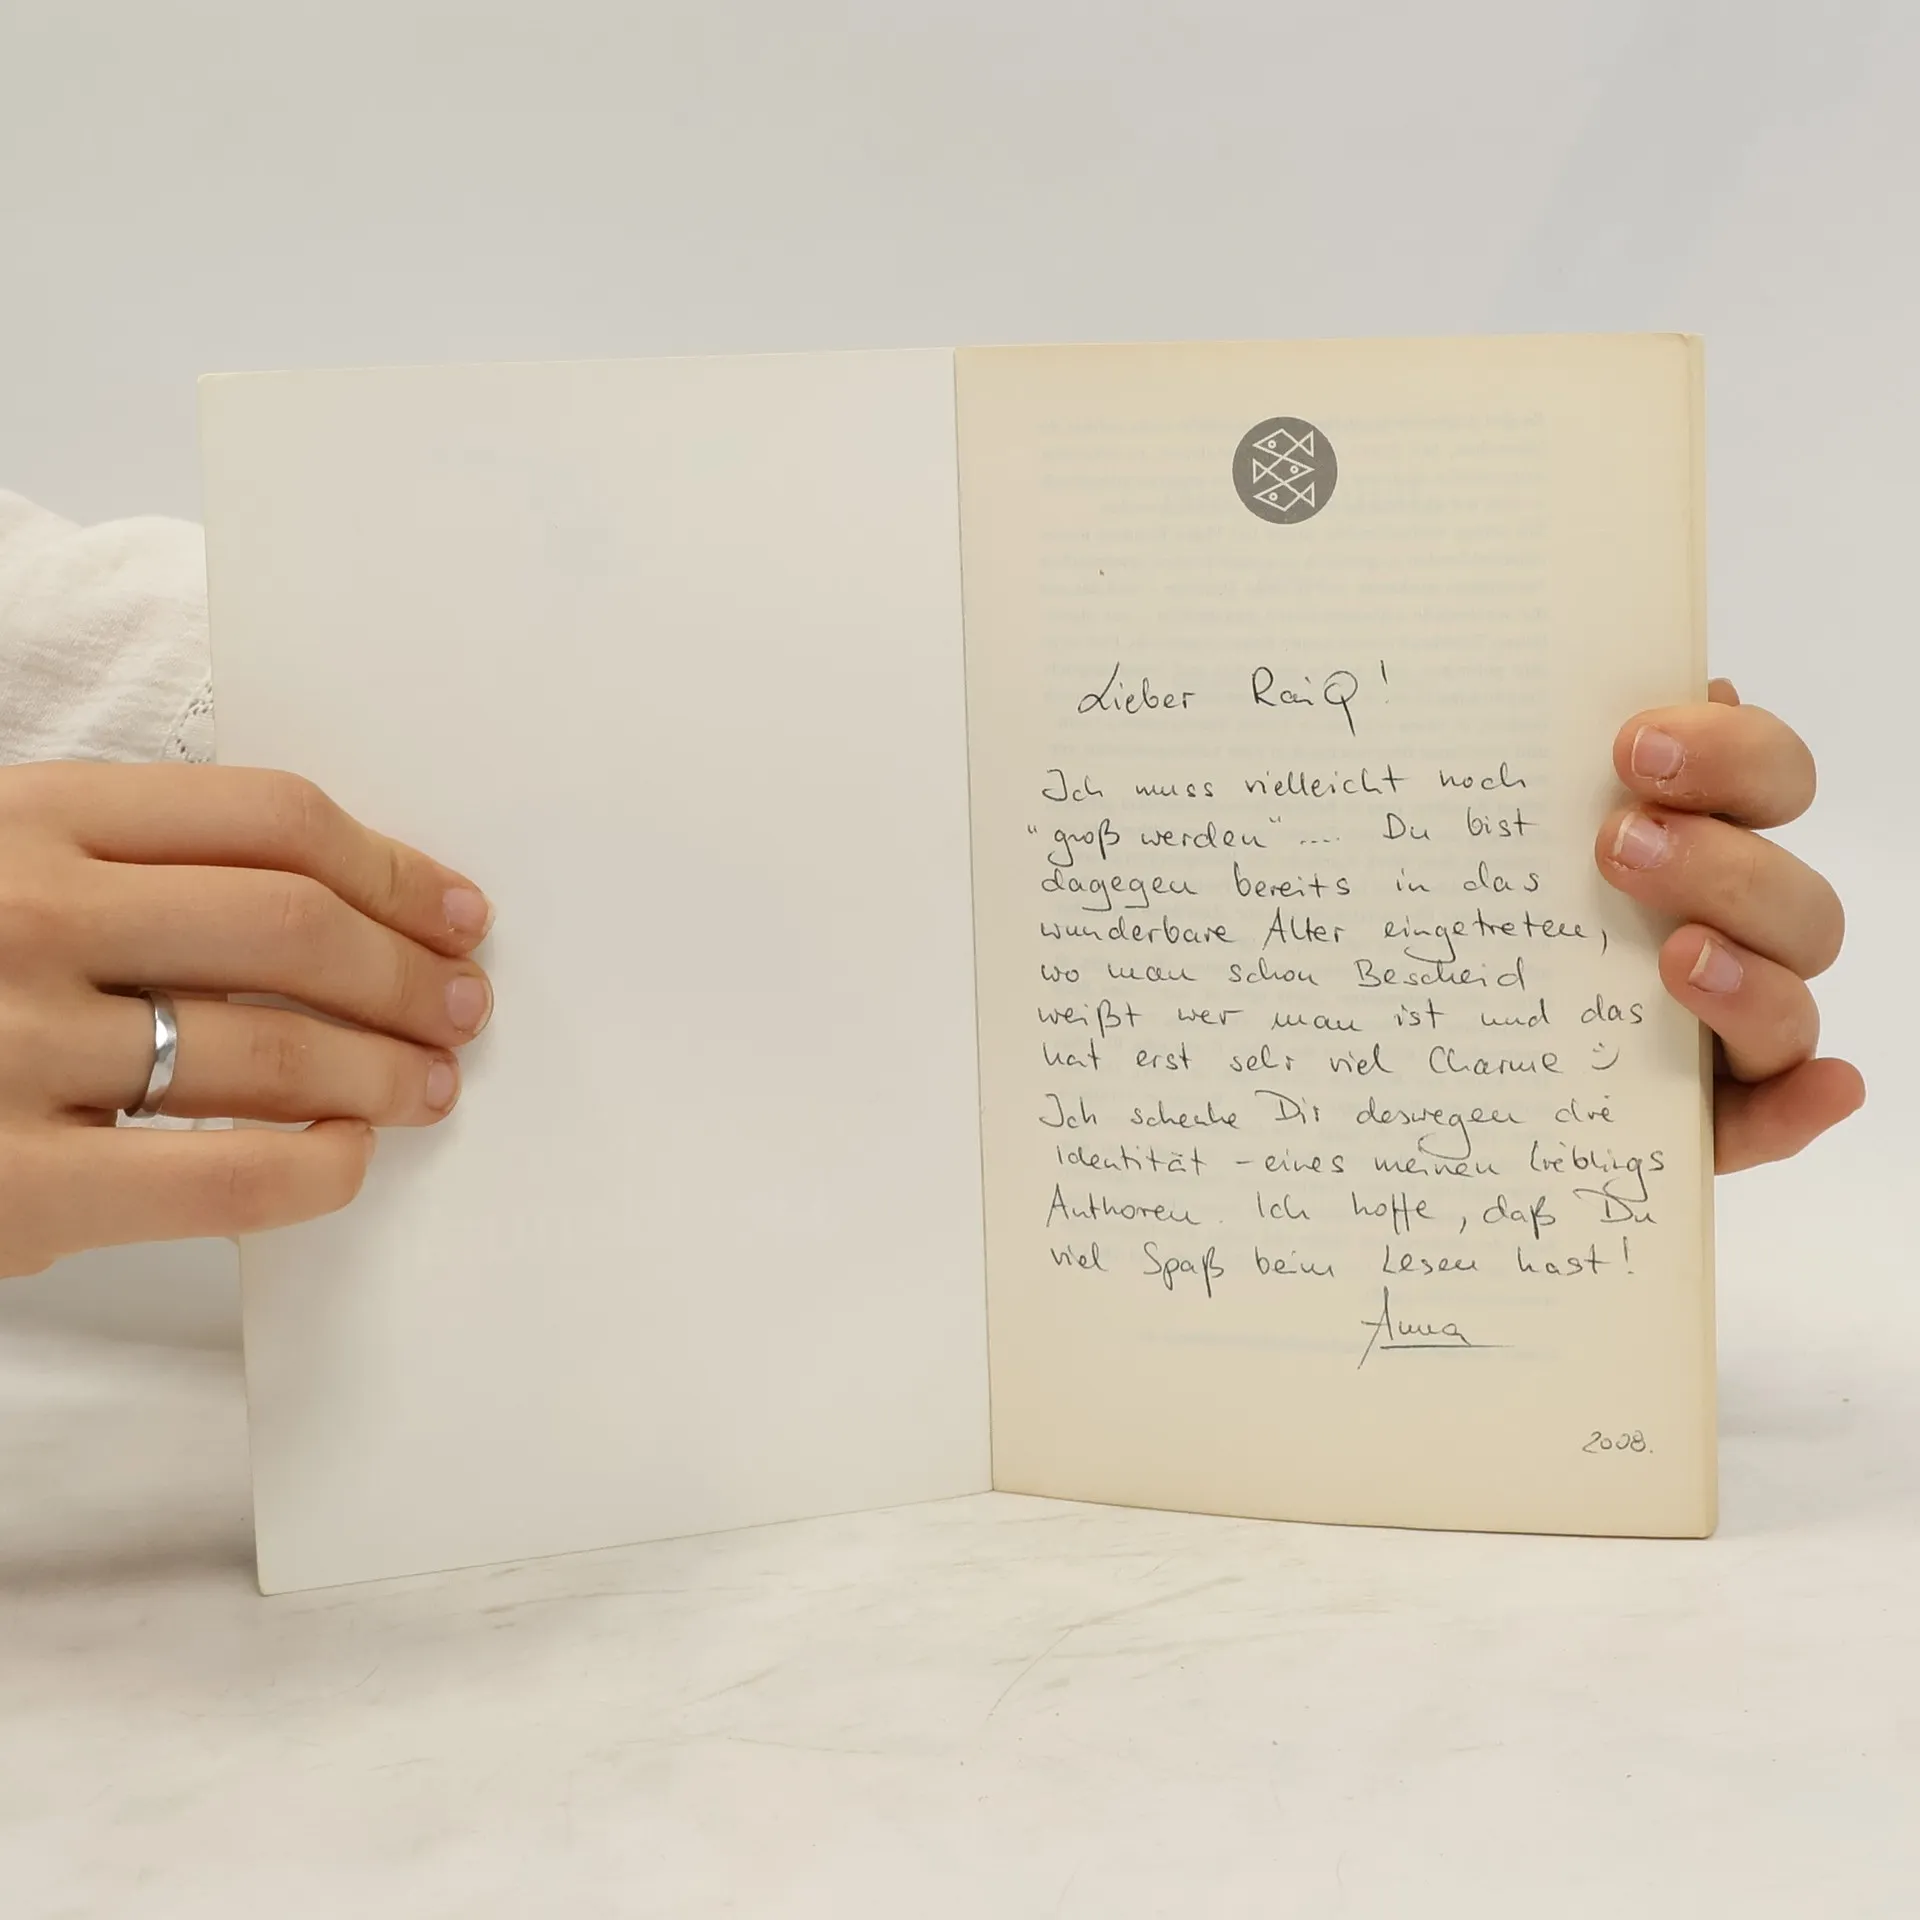 Lieber RaiQ!
Ich muss vielleicht noch
"groß werden".... Du bist
dagegen bereits in das
wunderbare Alter eingetreten,
wo man schon Bescheid
weißt wer man ist und das
hat erst sehr viel Charme :)
Ich schenke Dir deswegen die
Identität - eines meinen Lieblings
Authoren. Ich hoffe, daß Du
viel Spaß beim Lesen hast!
Anna
2008.